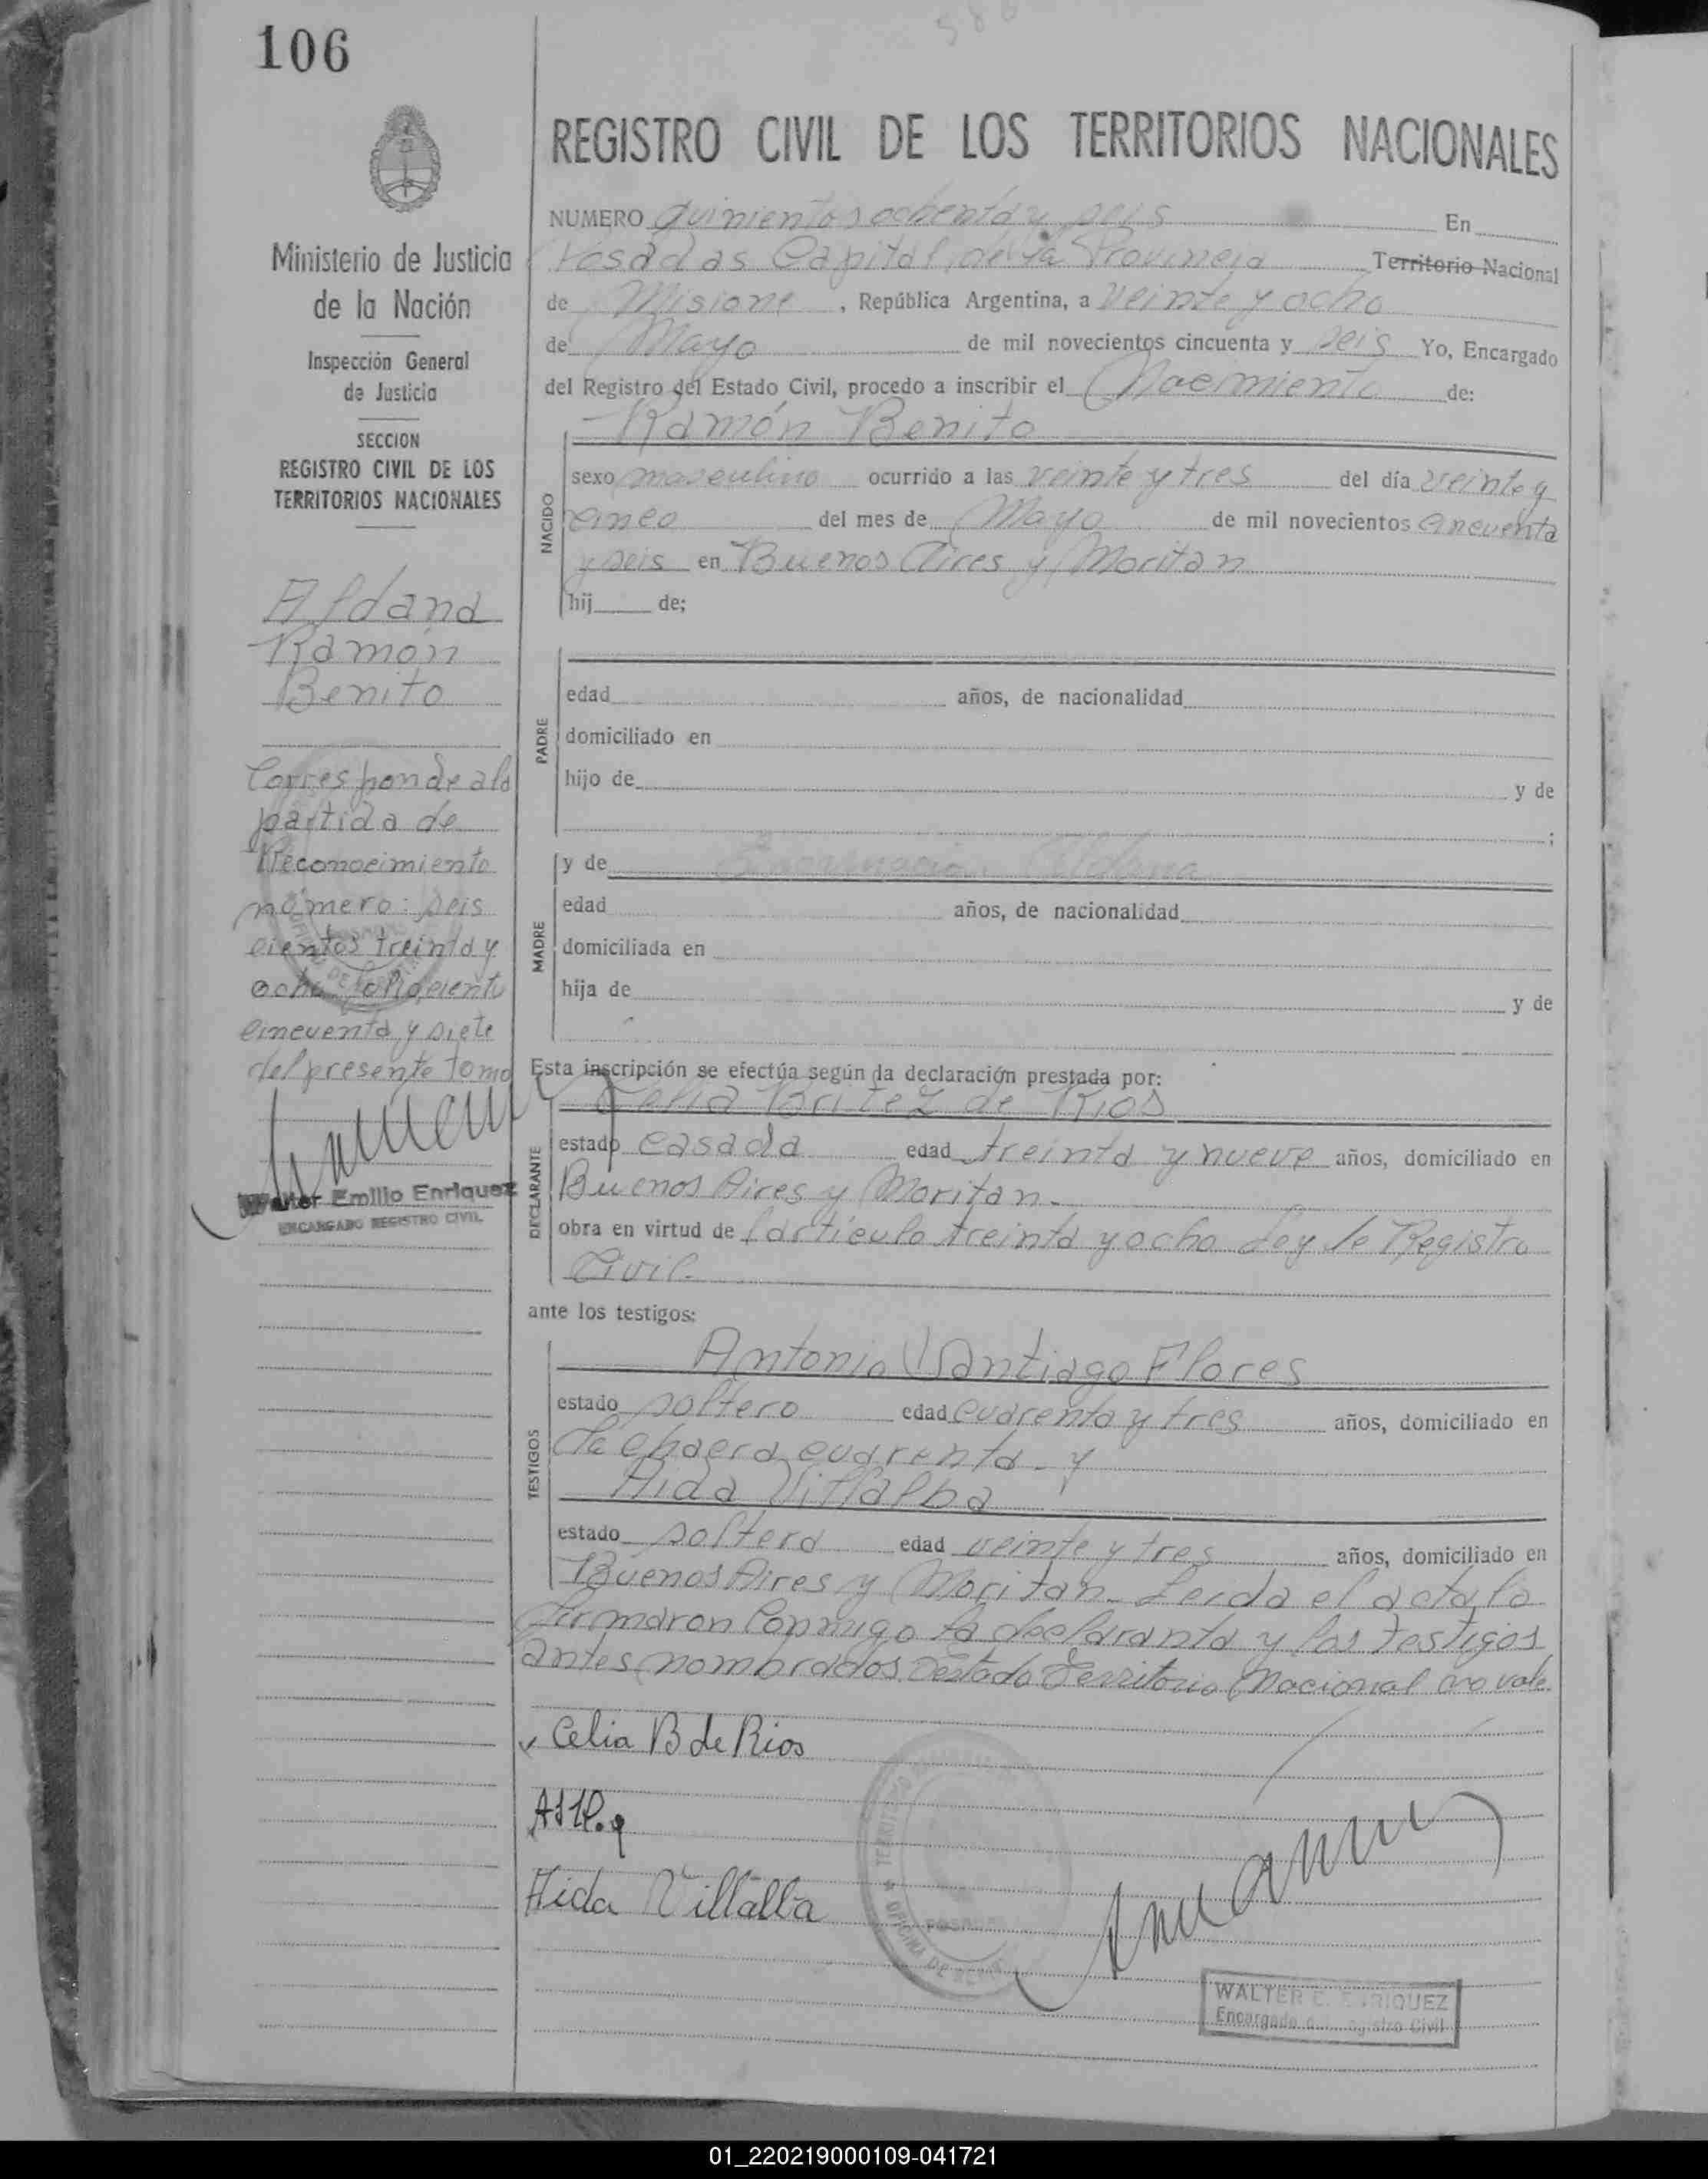 586
106
REGISTRO CIVIL DE LOS TERRITORIOS NACIONALES
Ministerio de Justicia
de la Nación
Inspección General
de Justicia
SECCION
REGISTRO CIVIL DE LOS
TERRITORIOS NACIONALES
Aldana
Ramón
Benito
Corresponde a la
partida de
Reconocimiento
número: seis
cientos treinta y
ocho folio ciento
cincuenta y siete
del presente tomo
Walter Emilio Enriquez
ENCARGADO REGISTRO CIVIL
NUMERO quinientos ochenta y seis En
Posadas Capital de la Provincia Territorio Nacional
de Misione, República Argentina, a veinte y ocho
de Mayo de mil novecientos cincuenta y seis Yo, Encargado
del Registro del Estado Civil, procedo a inscribir el Nacimiento de:
Ramón Benito
NACIDO
sexo masculino ocurrido a las veinte y tres del día veinte y
cinco del mes de Mayo de mil novecientos cincuenta
y seis en Buenos Aires y Moritan
hij de;
PADRE
edad años, de nacionalidad
domiciliado en
hijo de y de
;
MADRE
y de Encarnación Aldana
edad años, de nacionalidad
domiciliada en
hija de y de
Esta inscripción se efectúa según la declaración prestada por:
DECLARANTE
Celia Britez de Rios
estado casada edad treinta y nueve años, domiciliado en
Buenos Aires y Moritan.
obra en virtud de l artículo treinta y ocho Ley de Registro
Civil.
ante los testigos:
TESTIGOS
Antonio Santiago Flores
estado soltero edad cuarenta y tres años, domiciliado en
la chacra cuarenta - y
Aida Villalba
estado soltera edad veinte y tres años, domiciliado en
Buenos Aires y Moritan - Leida el acta la
firmaron conmigo la declaranta y los testigos
antes nombrados. Testado Territorio Nacional no vale.
Celia B de Rios
Aida Villalba
TERRITORIO
POSADAS
OFICINA DE
WALTER E. ENRIQUEZ
Encargado del Registro Civil
01_220219000109-041721